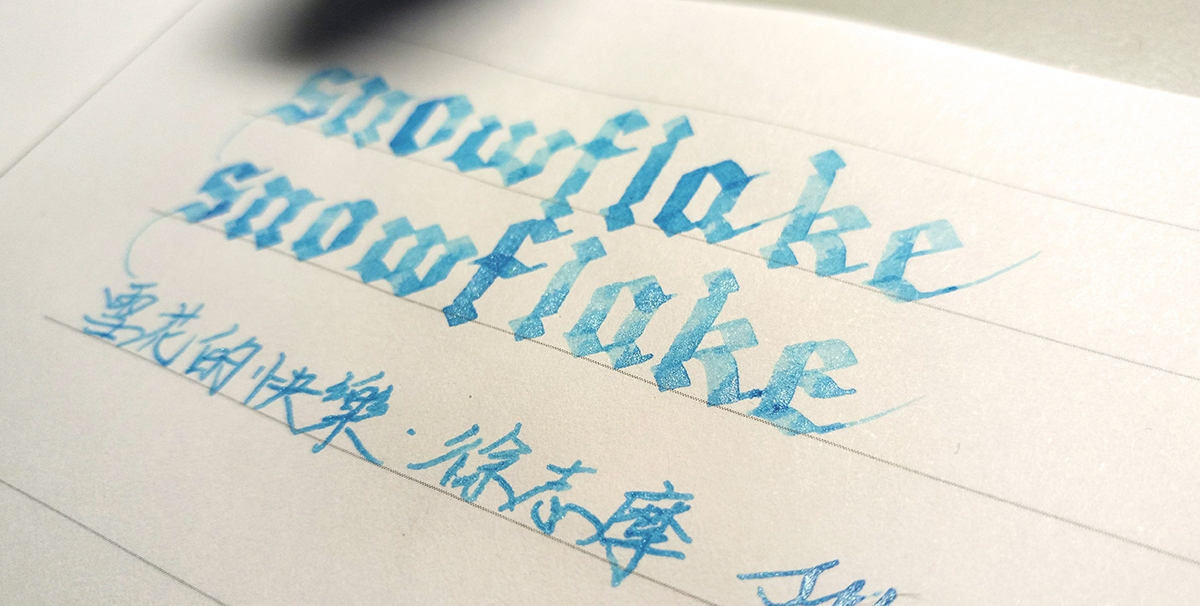 snowflake
snowflake
雪花的快樂·徐志摩